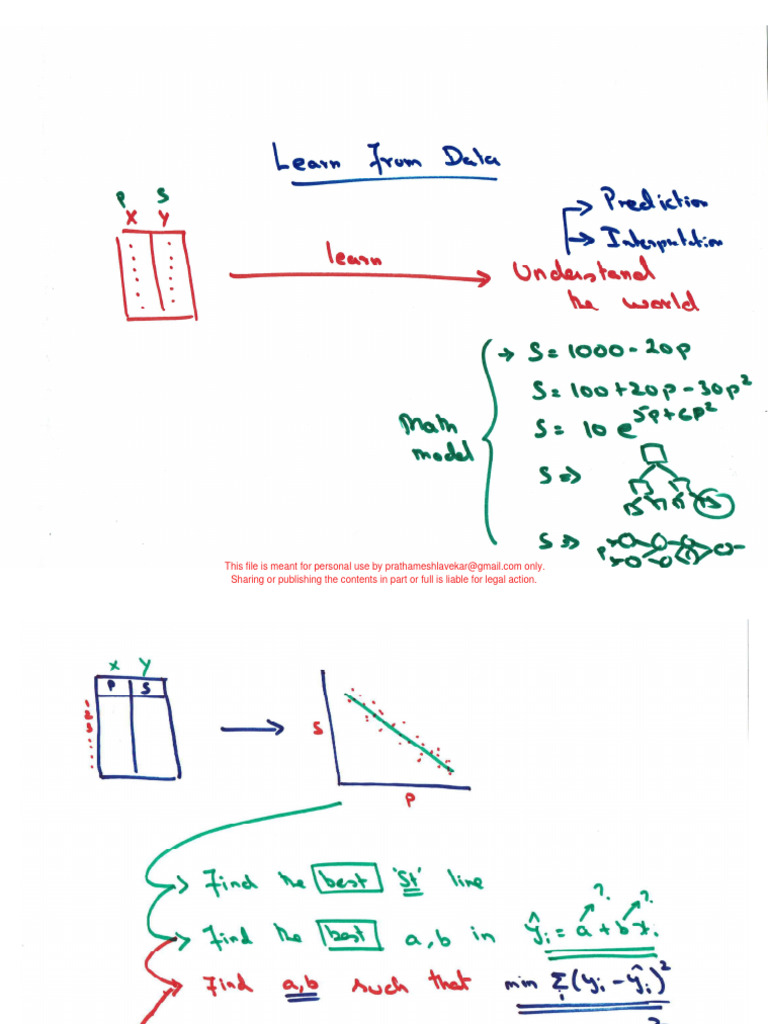 Learn From Data
P S
X Y
learn
Prediction
Interpretation
Understand
the world
Math
model
→ S = 1000 - 20p
S = 100 + 20p - 30p²
S = 10 e^{5p+6p²}
S ⇒
S ⇒
P
This file is meant for personal use by prathameshlavekar@gmail.com only.
Sharing or publishing the contents in part or full is liable for legal action.
X Y
P S
S
P
Find the best 'St' line
Find the best a, b in ŷᵢ = a + b xᵢ
? ?
Find a,b such that min Σᵢ (yᵢ - ŷᵢ)²